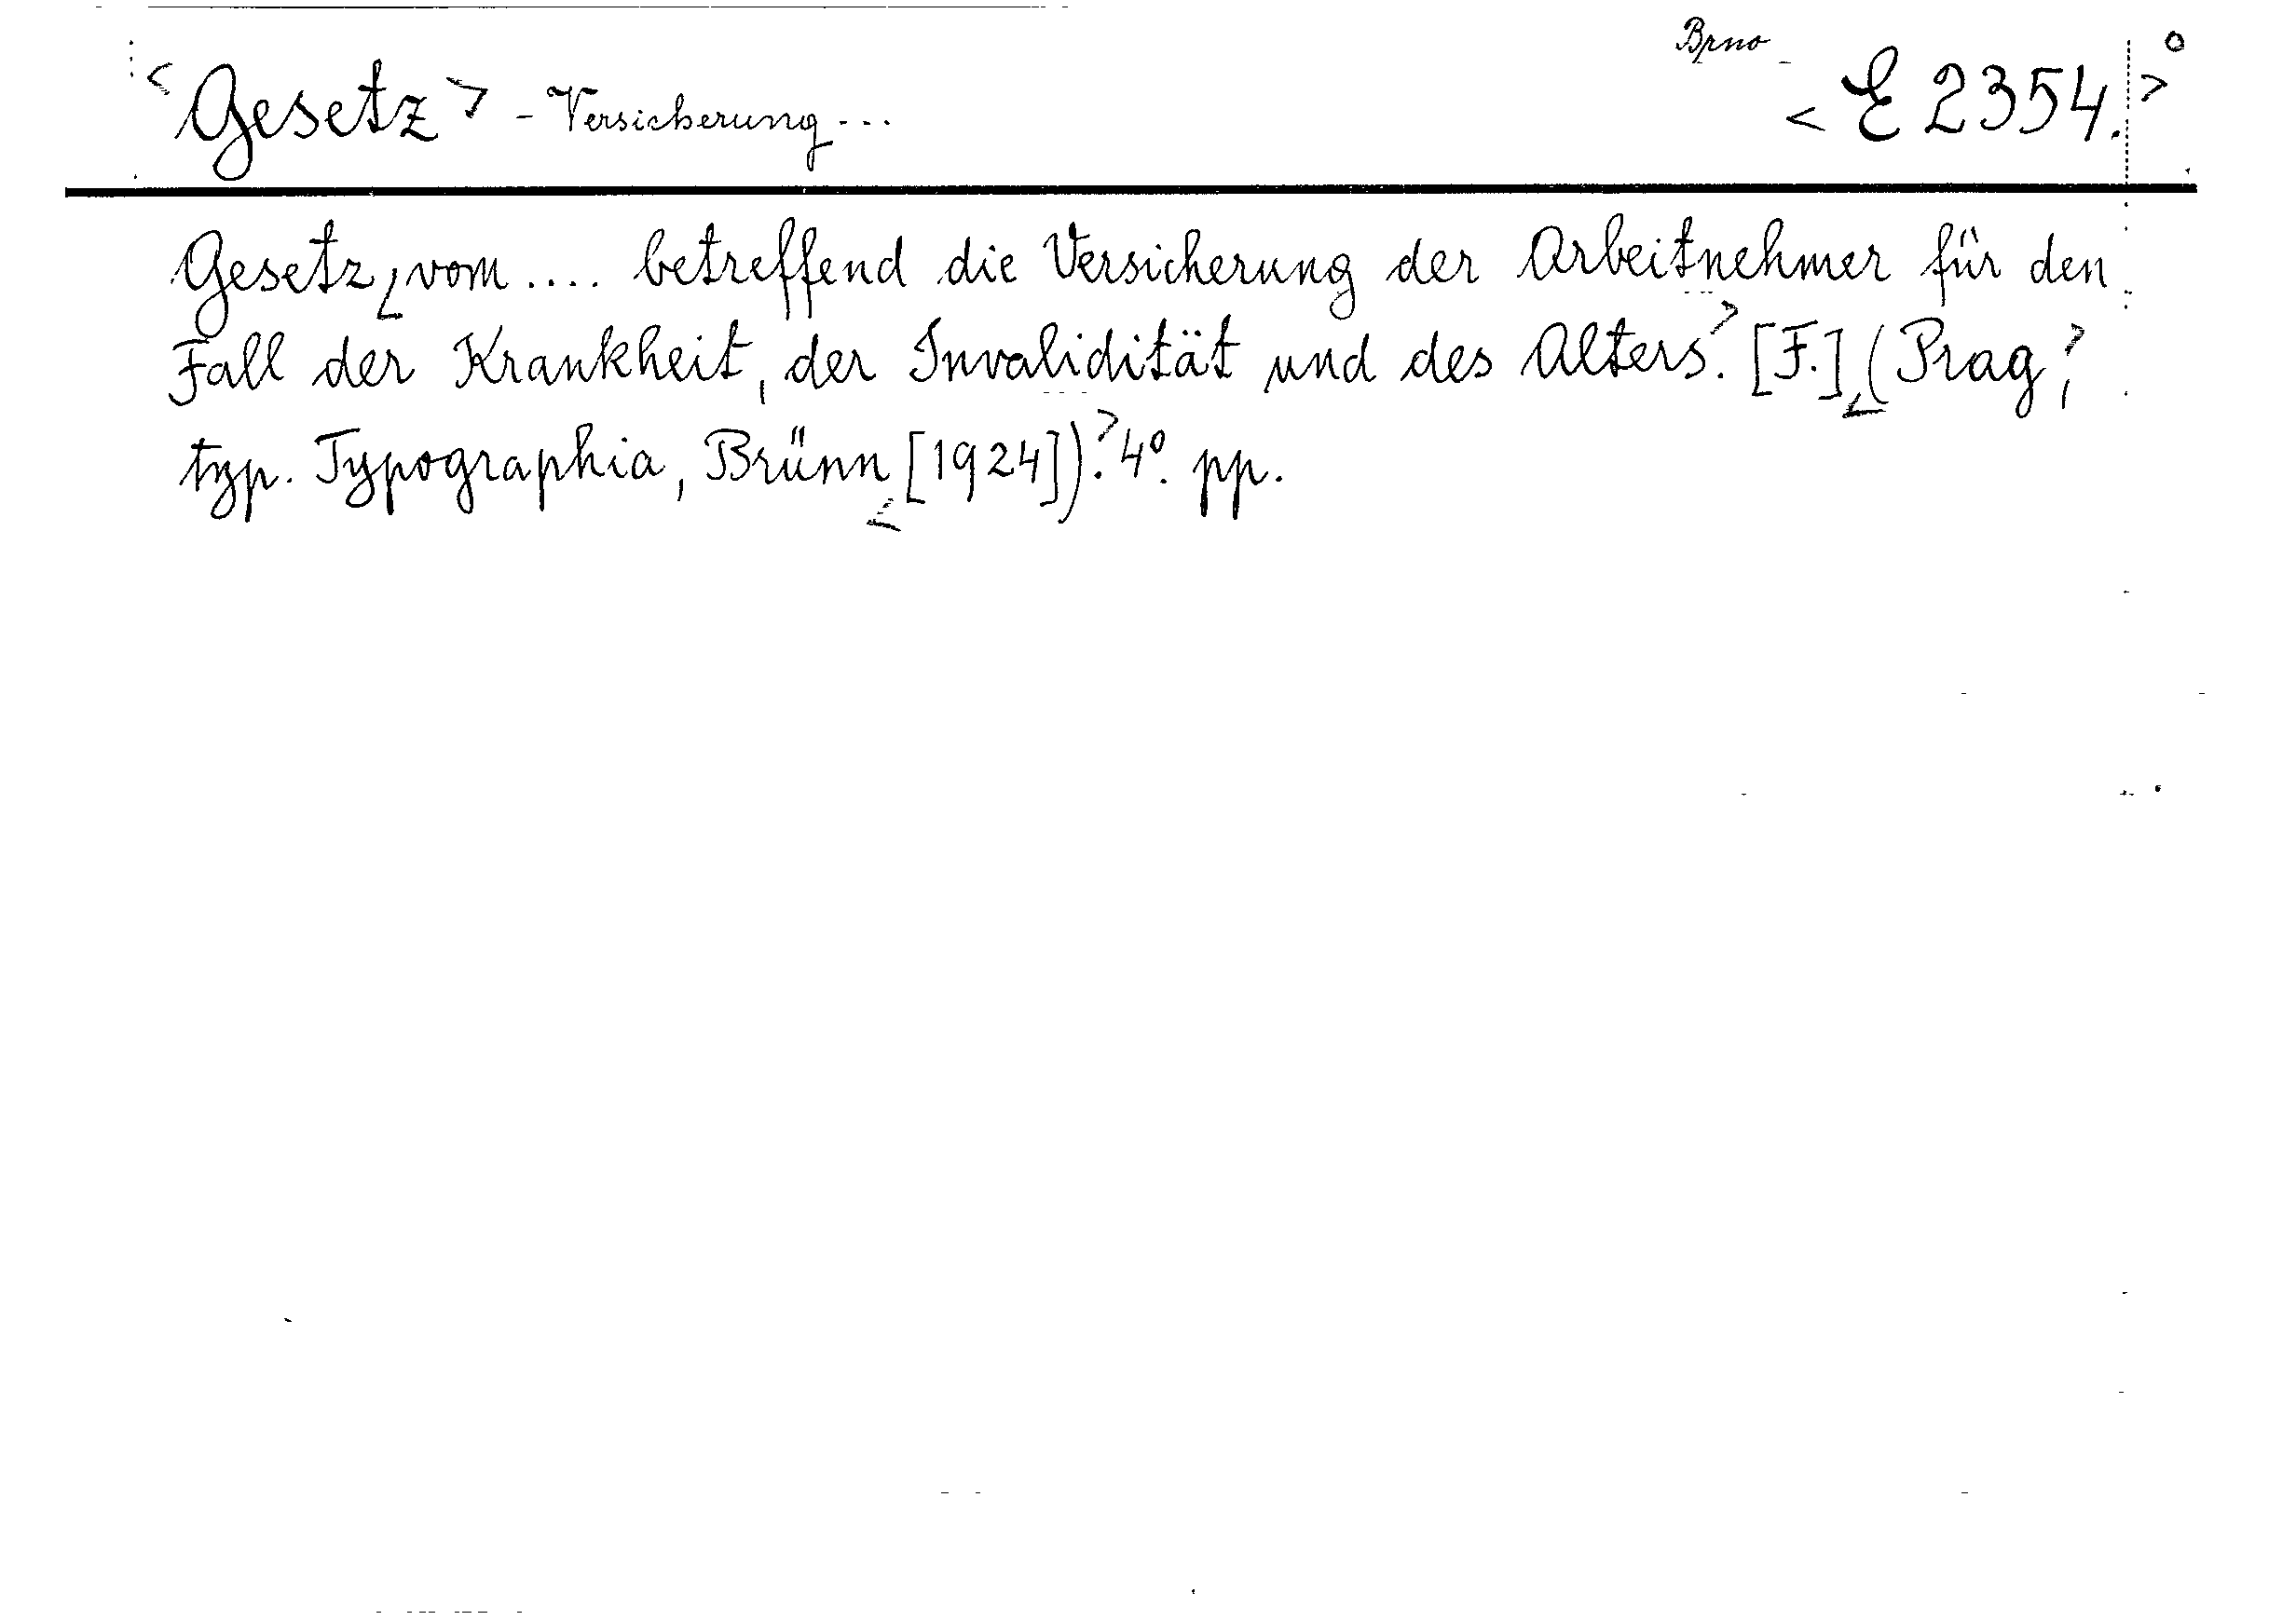 Brno
<Gesetz> - Versicherung... <E 2354.>
Gesetz, vom .... betreffend die Versicherung der Arbeitnehmer für den
Fall der Krankheit, der Invalidität und des Alters. [F.] (Prag,
typ. Typographia, Brünn [1924]). 4°. pp.